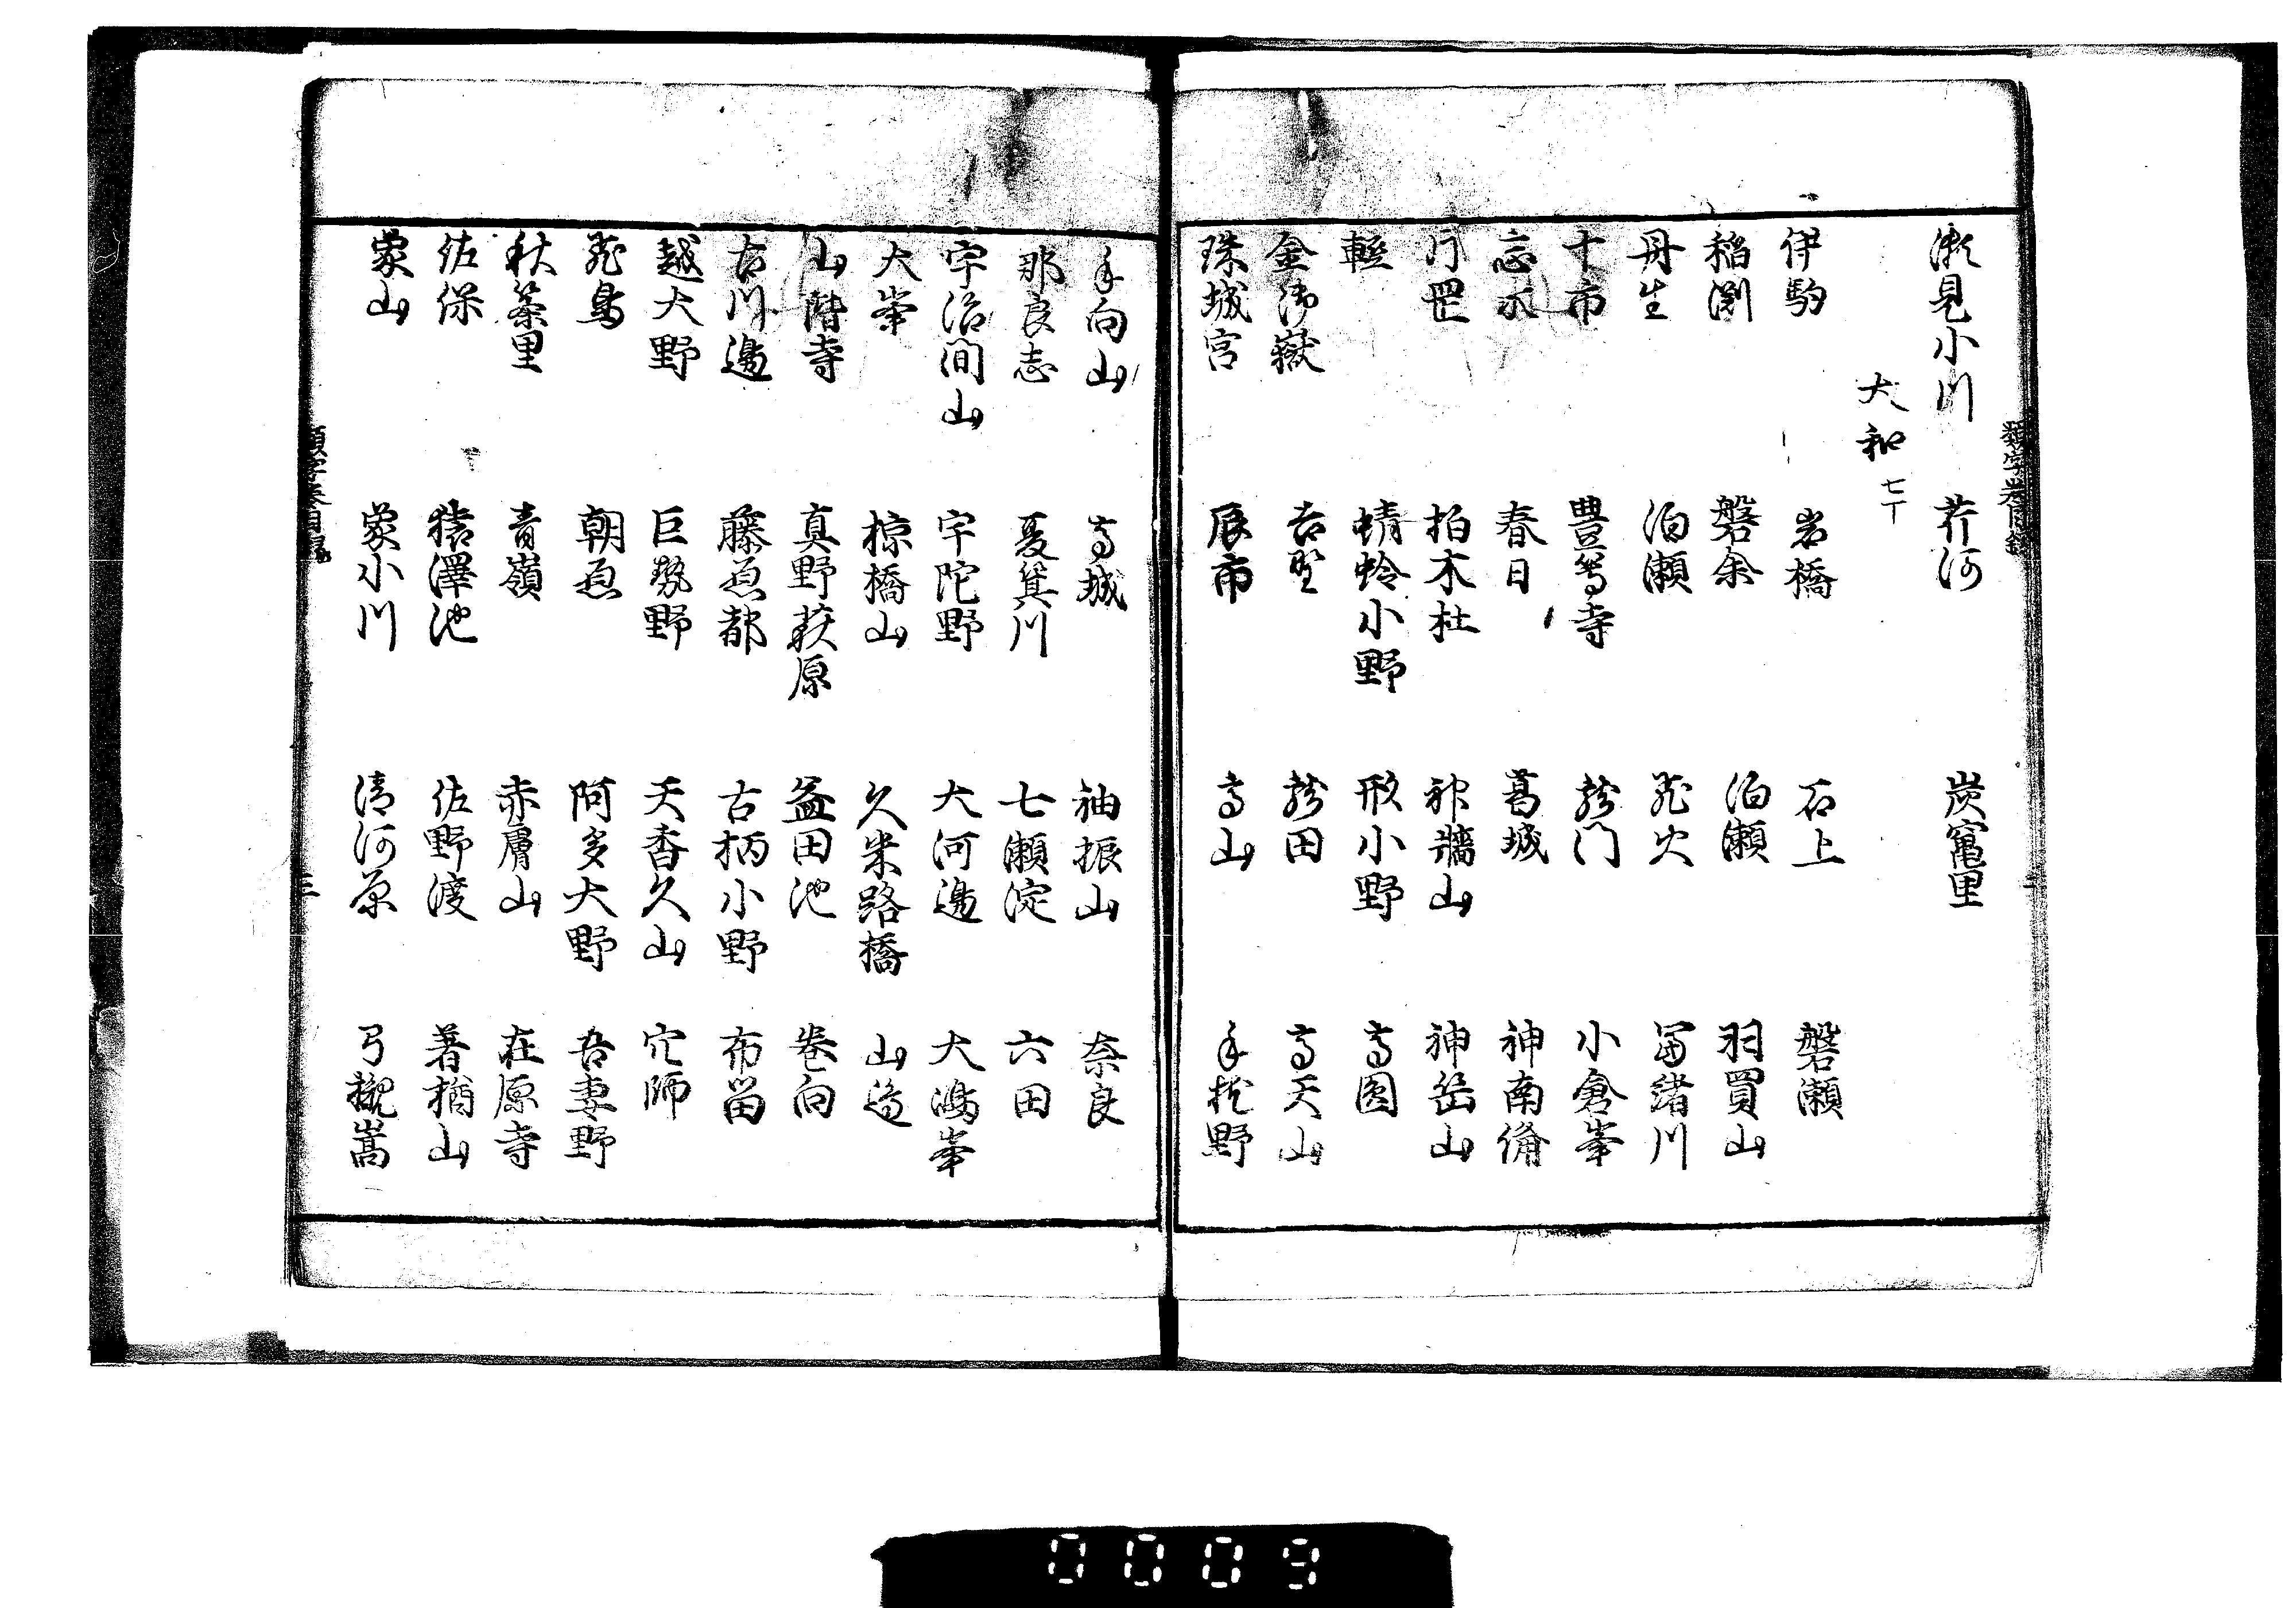 瀬見小川 芹河 炭竃里
大和 七丁
伊駒 岩橋 石上 磐瀬
稲渕 磐余 泊瀬 羽買山
丹生 泊瀬 飛火 冨緒川
十市 豊等寺 龍門 小倉峯
忘水 春日 葛城 神南備
片岡 柏木杜 神牆山 神岳山
軽 蜻蛉小野 形小野 高圓
金御嶽 吉野 龍田 高天山
珠城宮 辰市 高山 手枕野
手向山 高城 袖振山 奈良
那良志 夏箕川 七瀬淀 六田
宇治間山 宇陀野 大河邊 大嶋峯
大峯 椋橋山 久米路橋 山邊
山階寺 真野萩原 益田池 巻向
古川邊 藤原都 古柄小野 布留
越大野 巨勢野 天香久山 穴師
飛鳥 朝原 阿多大野 吾妻野
秋篠里 青嶺 赤膚山 在原寺
佐保 猿澤池 佐野渡 著猶山
象山 象小川 清河原 弓槻嵩
類字巻目録
三
0009